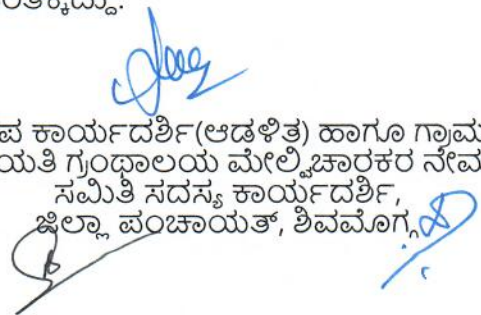 ಪ ಕಾರ್ಯದರ್ಶಿ(ಆಡಳಿತ) ಹಾಗೂ ಗ್ರಾಮ
ಯತಿ ಗ್ರಂಥಾಲಯ ಮೇಲ್ವಿಚಾರಕರ ನೇಮ
ಸಮಿತಿ ಸದಸ್ಯ ಕಾರ್ಯದರ್ಶಿ,
ಜಿಲ್ಲಾ ಪಂಚಾಯತ್, ಶಿವಮೊಗ್ಗ